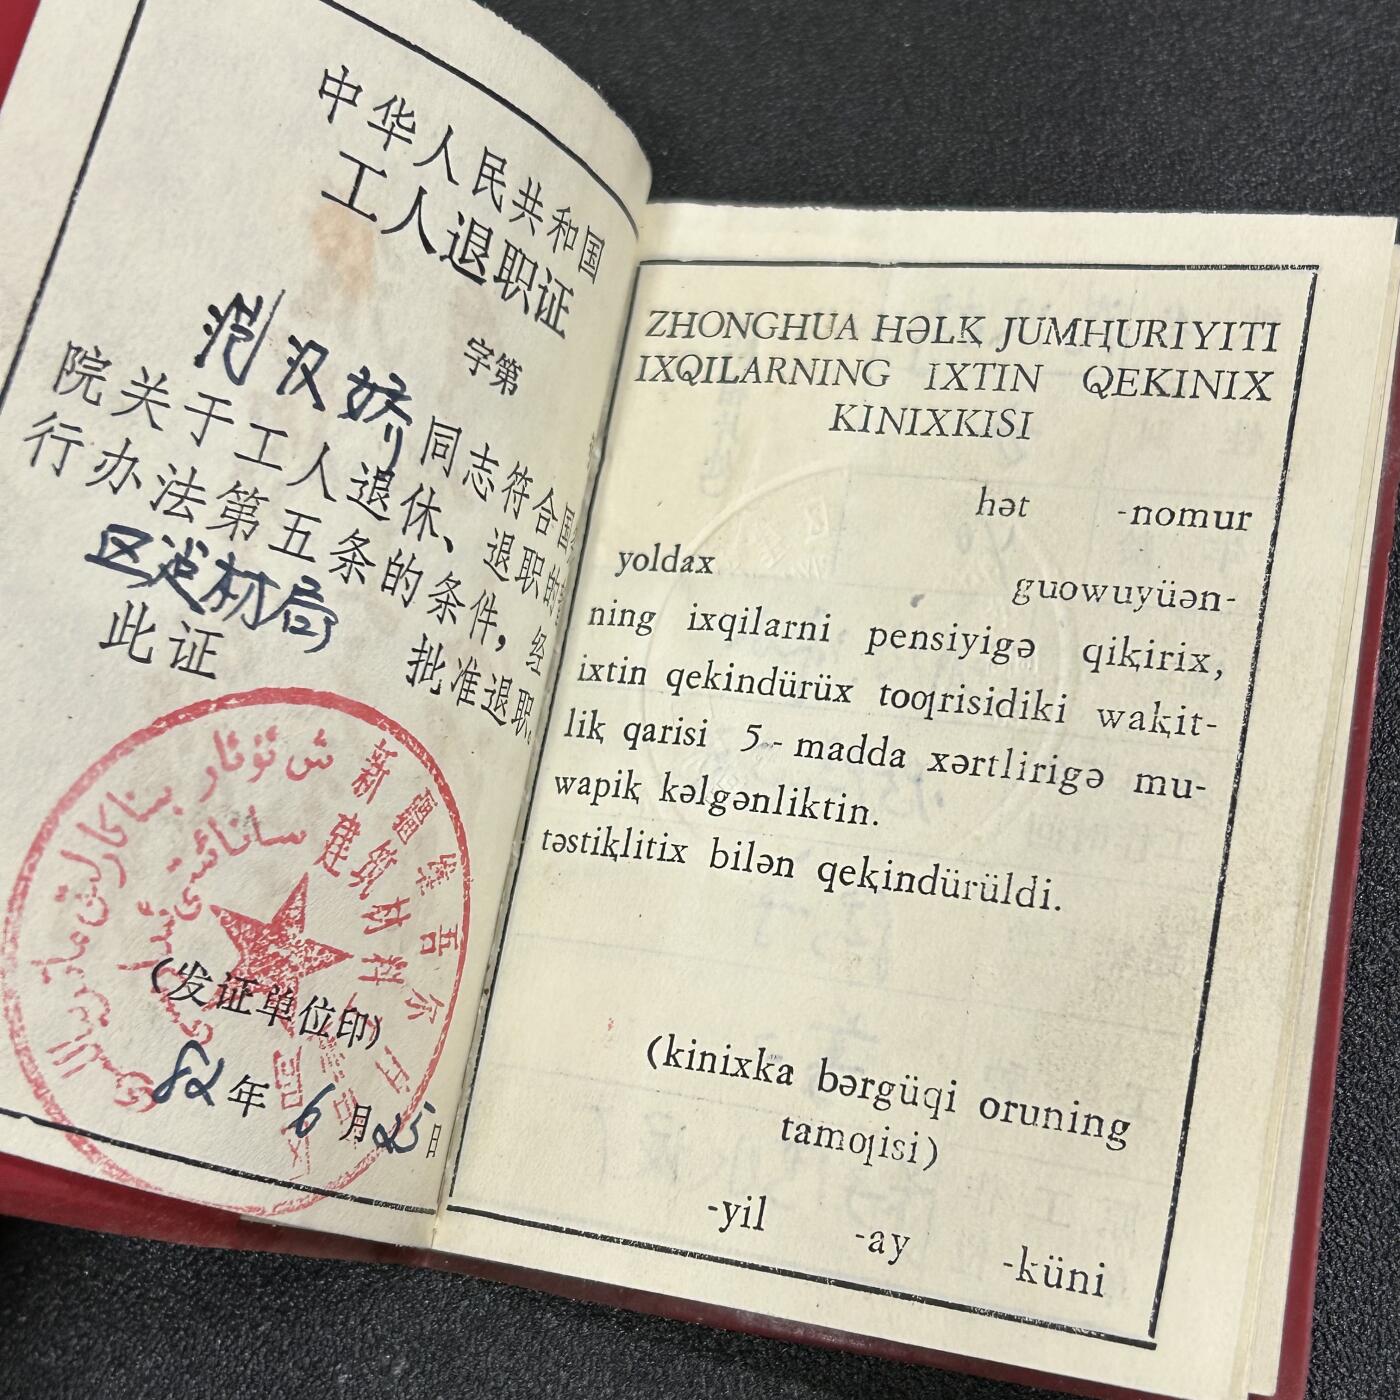 中华人民共和国
工人退职证
字第
汉娇同志符合国
院关于工人退休、退职的
行办法第五条的条件，经
区建材局 批准退职。
此证
新疆维吾尔
建筑材料工
(发证单位印)
82年6月25日
ZHONGHUA HƏLⱪ JUMⱨURIYITI
IXQILARNING IXTIN QEKINIX
KINIXKISI
hət -nomur
yoldax guowuyüən-
ning ixqilarni pensiyigə qiⱪirix,
ixtin qekindürüx toƣrisidiki waⱪit-
liⱪ qarisi 5 - madda xərtlirigə mu-
wapiⱪ kəlgənliktin.
təstiⱪlitix bilən qeⱪindürüldi.
(kinixka bərgüqi oruning
tamoƣisi)
-yil -ay -küni